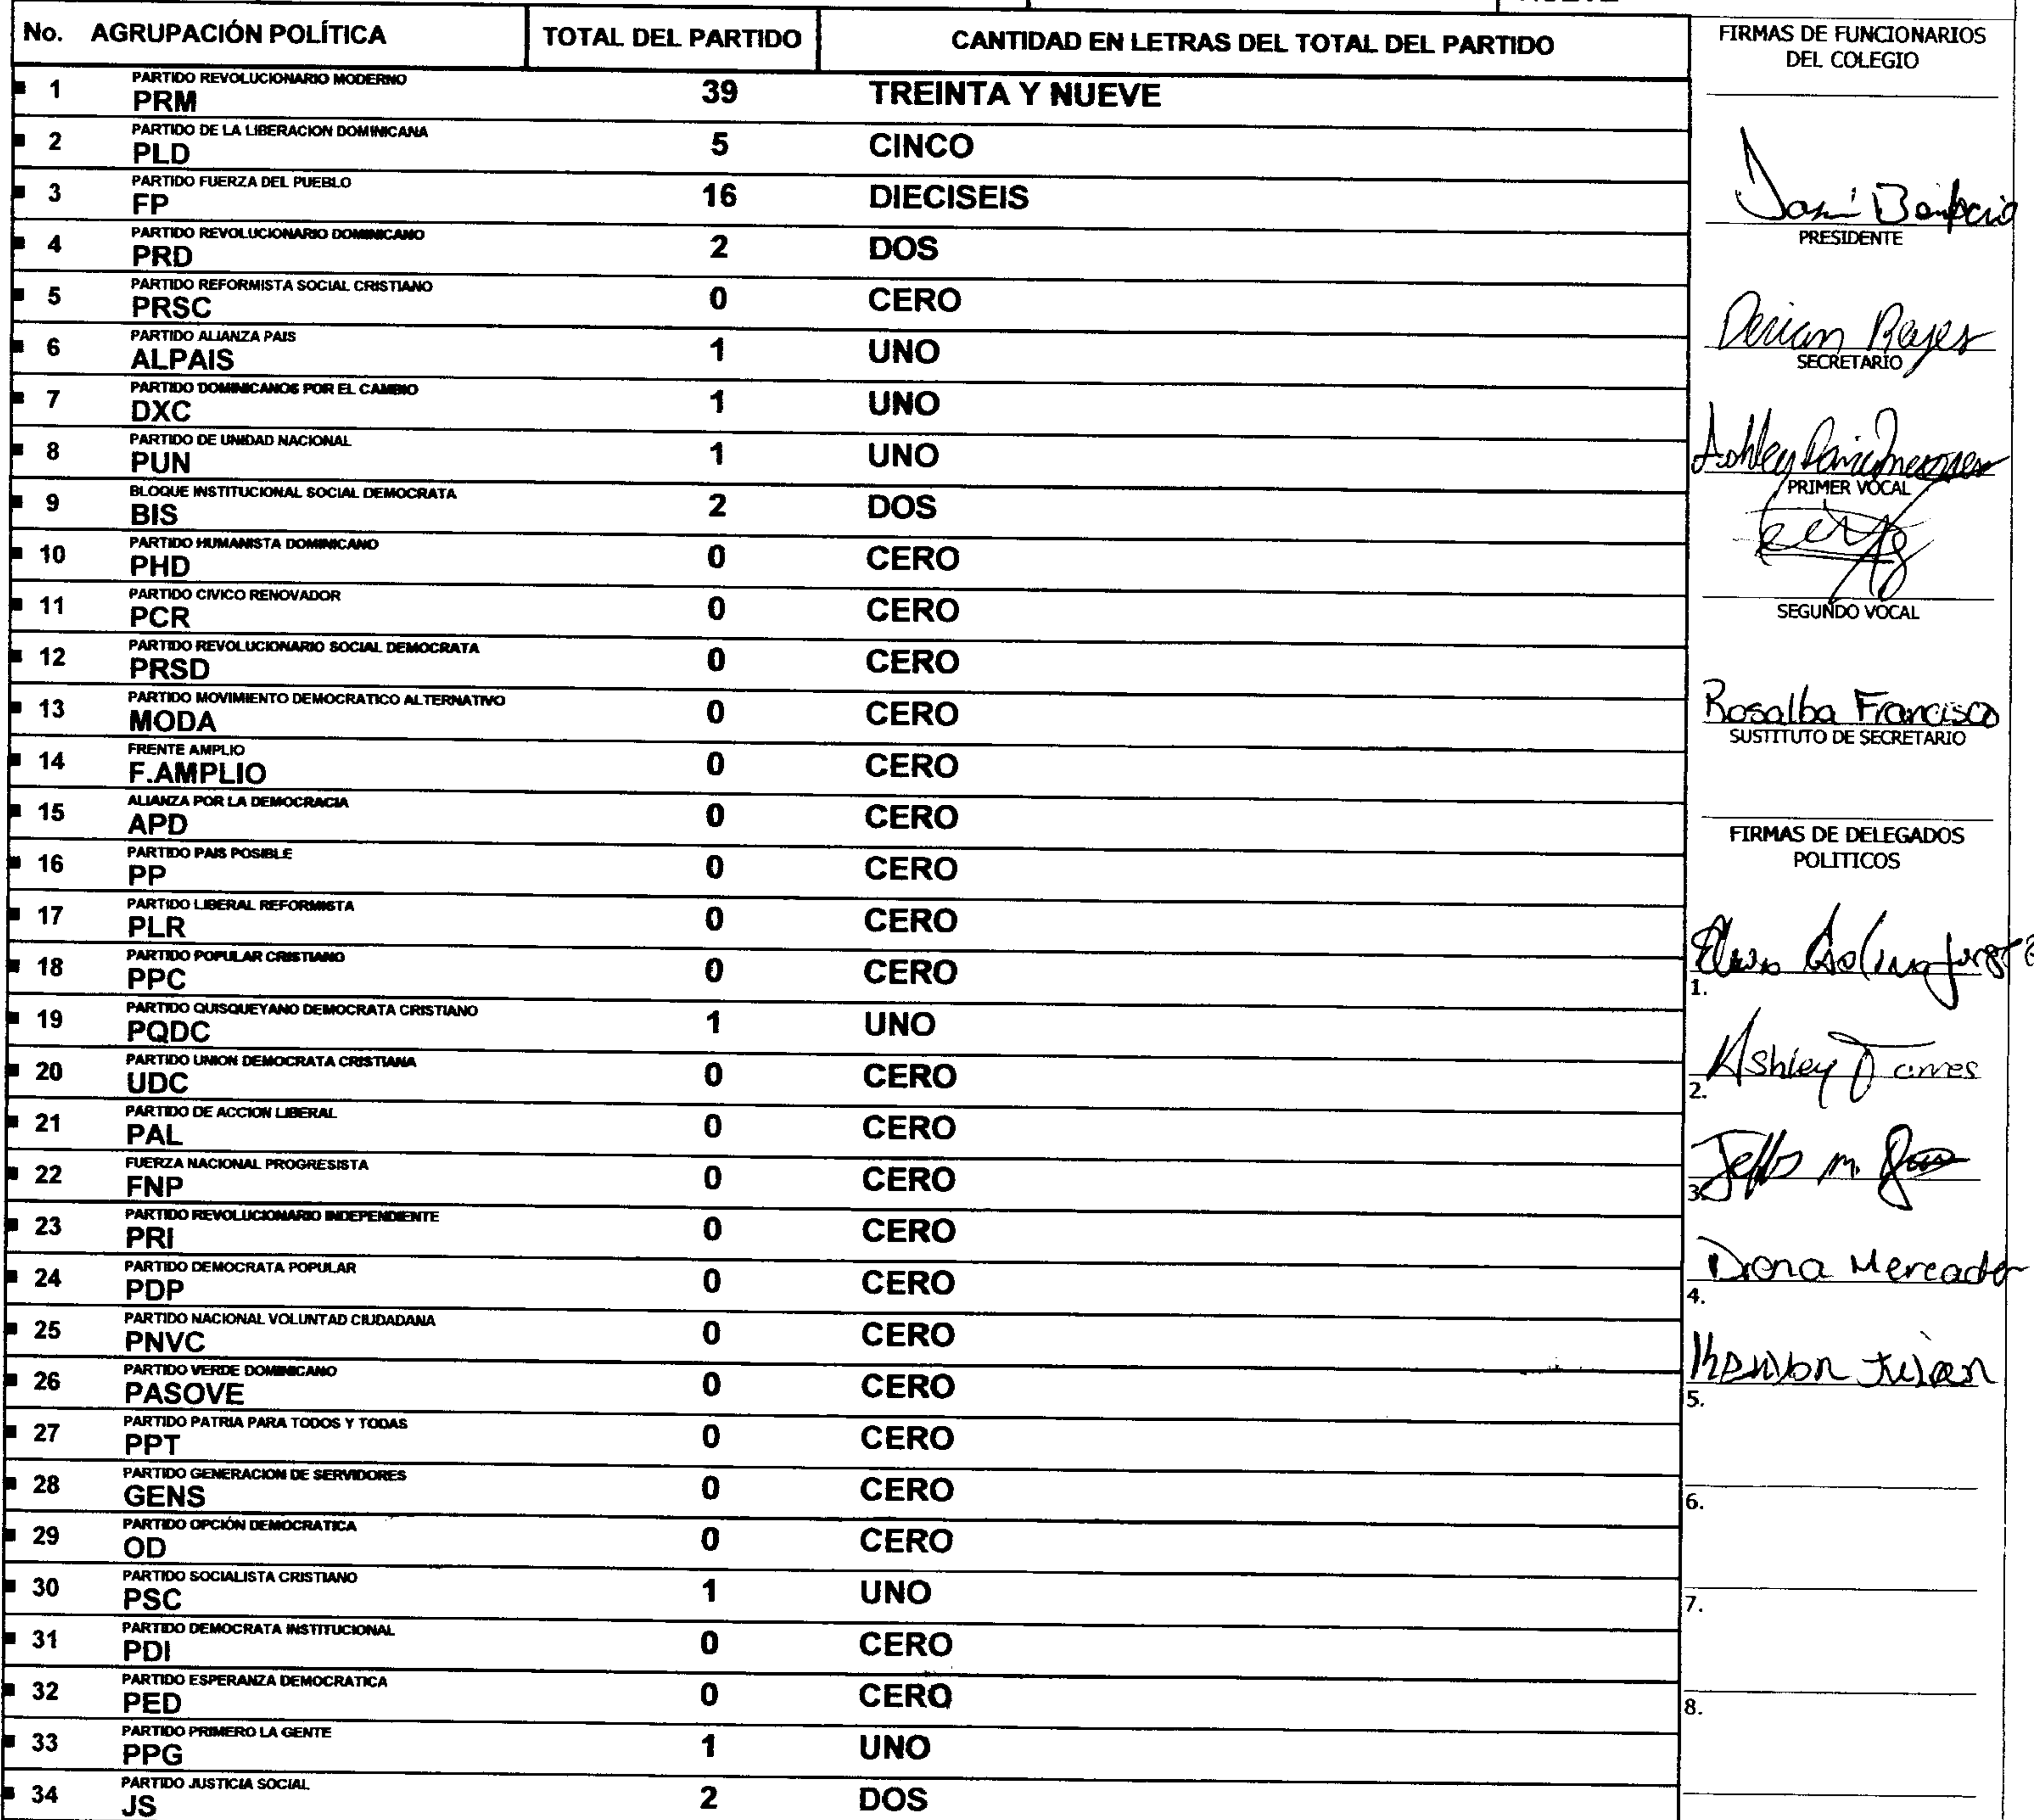 No. AGRUPACIÓN POLÍTICA TOTAL DEL PARTIDO CANTIDAD EN LETRAS DEL TOTAL DEL PARTIDO
PARTIDO REVOLUCIONARIO MODERNO
1 PRM 39 TREINTA Y NUEVE
PARTIDO DE LA LIBERACION DOMINICANA
2 PLD 5 CINCO
PARTIDO FUERZA DEL PUEBLO
3 FP 16 DIECISEIS
PARTIDO REVOLUCIONARIO DOMINICANO
4 PRD 2 DOS
PARTIDO REFORMISTA SOCIAL CRISTIANO
5 PRSC 0 CERO
PARTIDO ALIANZA PAIS
6 ALPAIS 1 UNO
PARTIDO DOMINICANOS POR EL CAMBIO
7 DXC 1 UNO
PARTIDO DE UNIDAD NACIONAL
8 PUN 1 UNO
BLOQUE INSTITUCIONAL SOCIAL DEMOCRATA
9 BIS 2 DOS
PARTIDO HUMANISTA DOMINICANO
10 PHD 0 CERO
PARTIDO CIVICO RENOVADOR
11 PCR 0 CERO
PARTIDO REVOLUCIONARIO SOCIAL DEMOCRATA
12 PRSD 0 CERO
PARTIDO MOVIMIENTO DEMOCRATICO ALTERNATIVO
13 MODA 0 CERO
FRENTE AMPLIO
14 F.AMPLIO 0 CERO
ALIANZA POR LA DEMOCRACIA
15 APD 0 CERO
PARTIDO PAIS POSIBLE
16 PP 0 CERO
PARTIDO LIBERAL REFORMISTA
17 PLR 0 CERO
PARTIDO POPULAR CRISTIANO
18 PPC 0 CERO
PARTIDO QUISQUEYANO DEMOCRATA CRISTIANO
19 PQDC 1 UNO
PARTIDO UNION DEMOCRATA CRISTIANA
20 UDC 0 CERO
PARTIDO DE ACCION LIBERAL
21 PAL 0 CERO
FUERZA NACIONAL PROGRESISTA
22 FNP 0 CERO
PARTIDO REVOLUCIONARIO INDEPENDIENTE
23 PRI 0 CERO
PARTIDO DEMOCRATA POPULAR
24 PDP 0 CERO
PARTIDO NACIONAL VOLUNTAD CIUDADANA
25 PNVC 0 CERO
PARTIDO VERDE DOMINICANO
26 PASOVE 0 CERO
PARTIDO PATRIA PARA TODOS Y TODAS
27 PPT 0 CERO
PARTIDO GENERACION DE SERVIDORES
28 GENS 0 CERO
PARTIDO OPCIÓN DEMOCRATICA
29 OD 0 CERO
PARTIDO SOCIALISTA CRISTIANO
30 PSC 1 UNO
PARTIDO DEMOCRATA INSTITUCIONAL
31 PDI 0 CERO
PARTIDO ESPERANZA DEMOCRATICA
32 PED 0 CERO
PARTIDO PRIMERO LA GENTE
33 PPG 1 UNO
PARTIDO JUSTICIA SOCIAL
34 JS 2 DOS
FIRMAS DE FUNCIONARIOS
DEL COLEGIO
PRESIDENTE
Derian Reyes
SECRETARIO
Ashley
PRIMER VOCAL
SEGUNDO VOCAL
Rosalba Francisco
SUSTITUTO DE SECRETARIO
FIRMAS DE DELEGADOS
POLITICOS
1.
2. Ashley
3.
4. Mercader
5.
6.
7.
8.